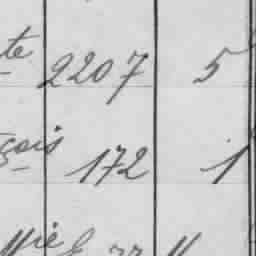 te 2207 5
çois 172 1